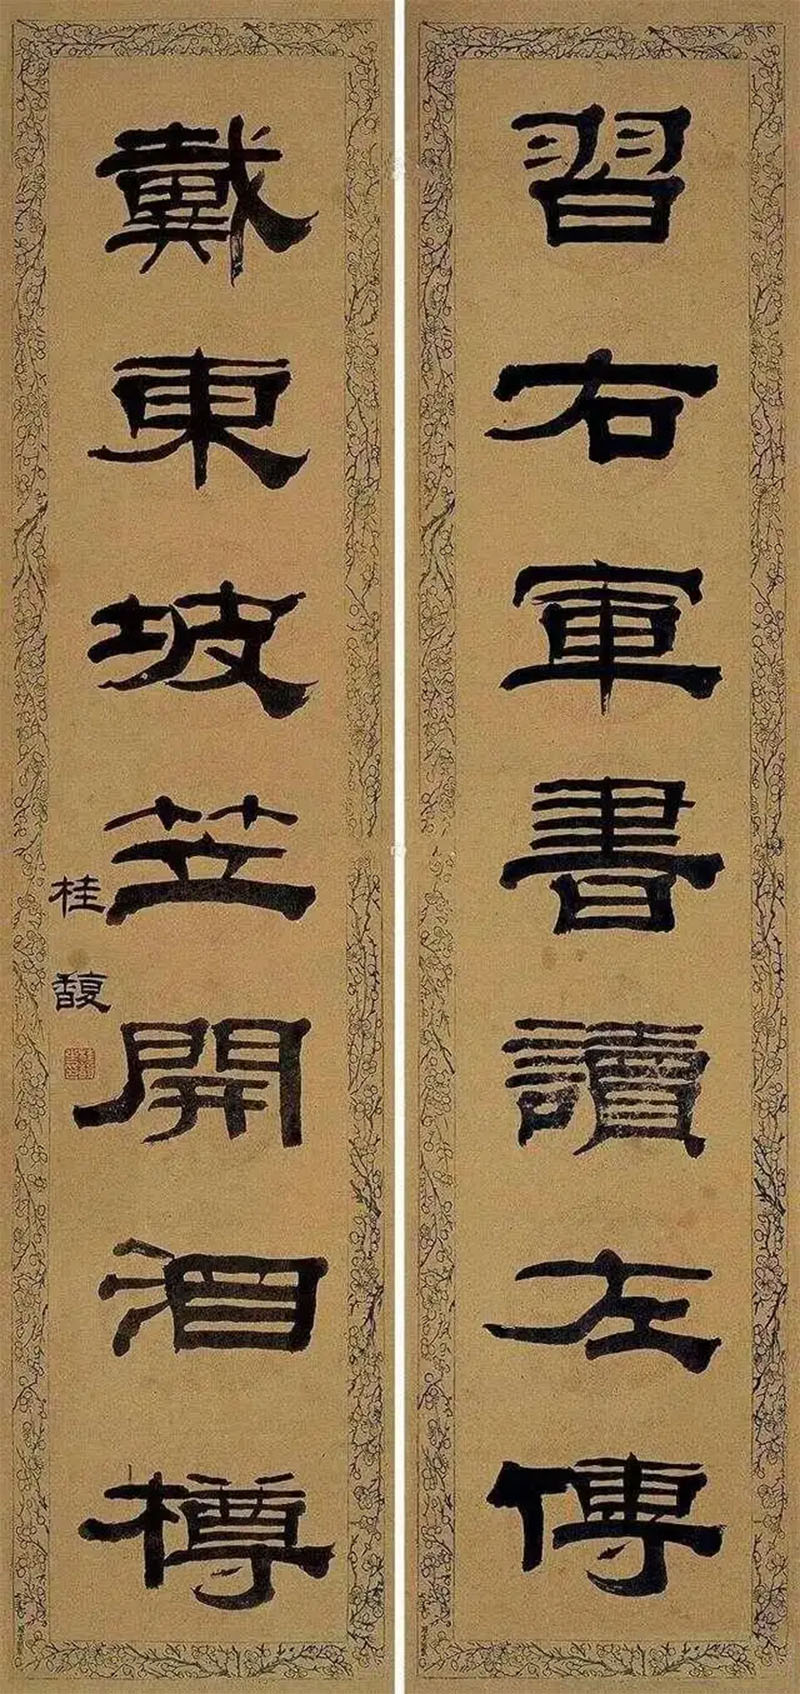 習右軍書讀左傳
戴東坡笠開酒樽
桂馥